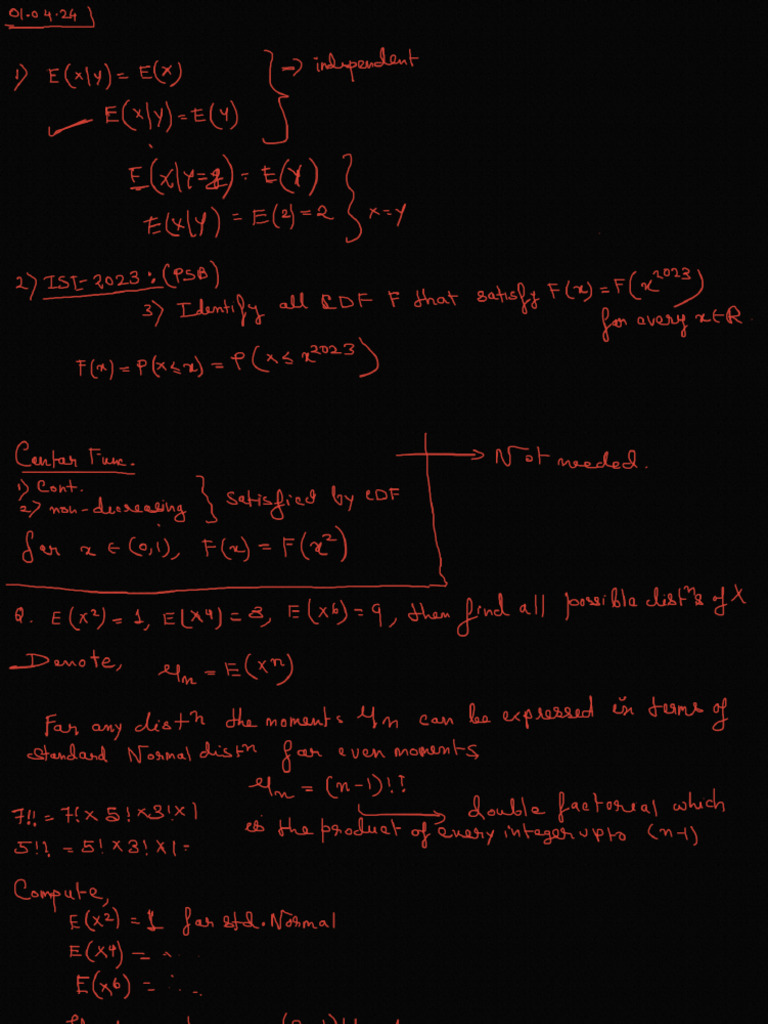 01.04.24
1) E(x|y) = E(x) } → independent
E(x|y) = E(y)
E(x|y=y) = E(Y)
E(x|y) = E(2) = 2 } x=y
2) ISI-2023: (PSB)
3) Identify all CDF F that satisfy F(x) = F(x^2023)
for every x∈R
F(x) = P(X≤x) = P(X≤x^2023)
Cantar Func. → Not needed.
1) Cont.
2) non-decreasing } satisfied by CDF
for x ∈ (0,1), F(x) = F(x^2)
Q. E(x^2) = 1, E(x^4) = 3, E(x^6) = 9, then find all possible distns of X
Denote, μn = E(x^n)
For any distn the moments μn can be expressed in terms of
standard Normal distn for even moments
μn = (n-1)!!
→ double factoreal which
is the product of every integer upto (n-1)
7!! = 7! × 5! × 3! × 1
5!! = 5! × 3! × 1 =
Compute,
E(x^2) = 1 for std. Normal
E(x^4) = ...
E(x^6) = ...